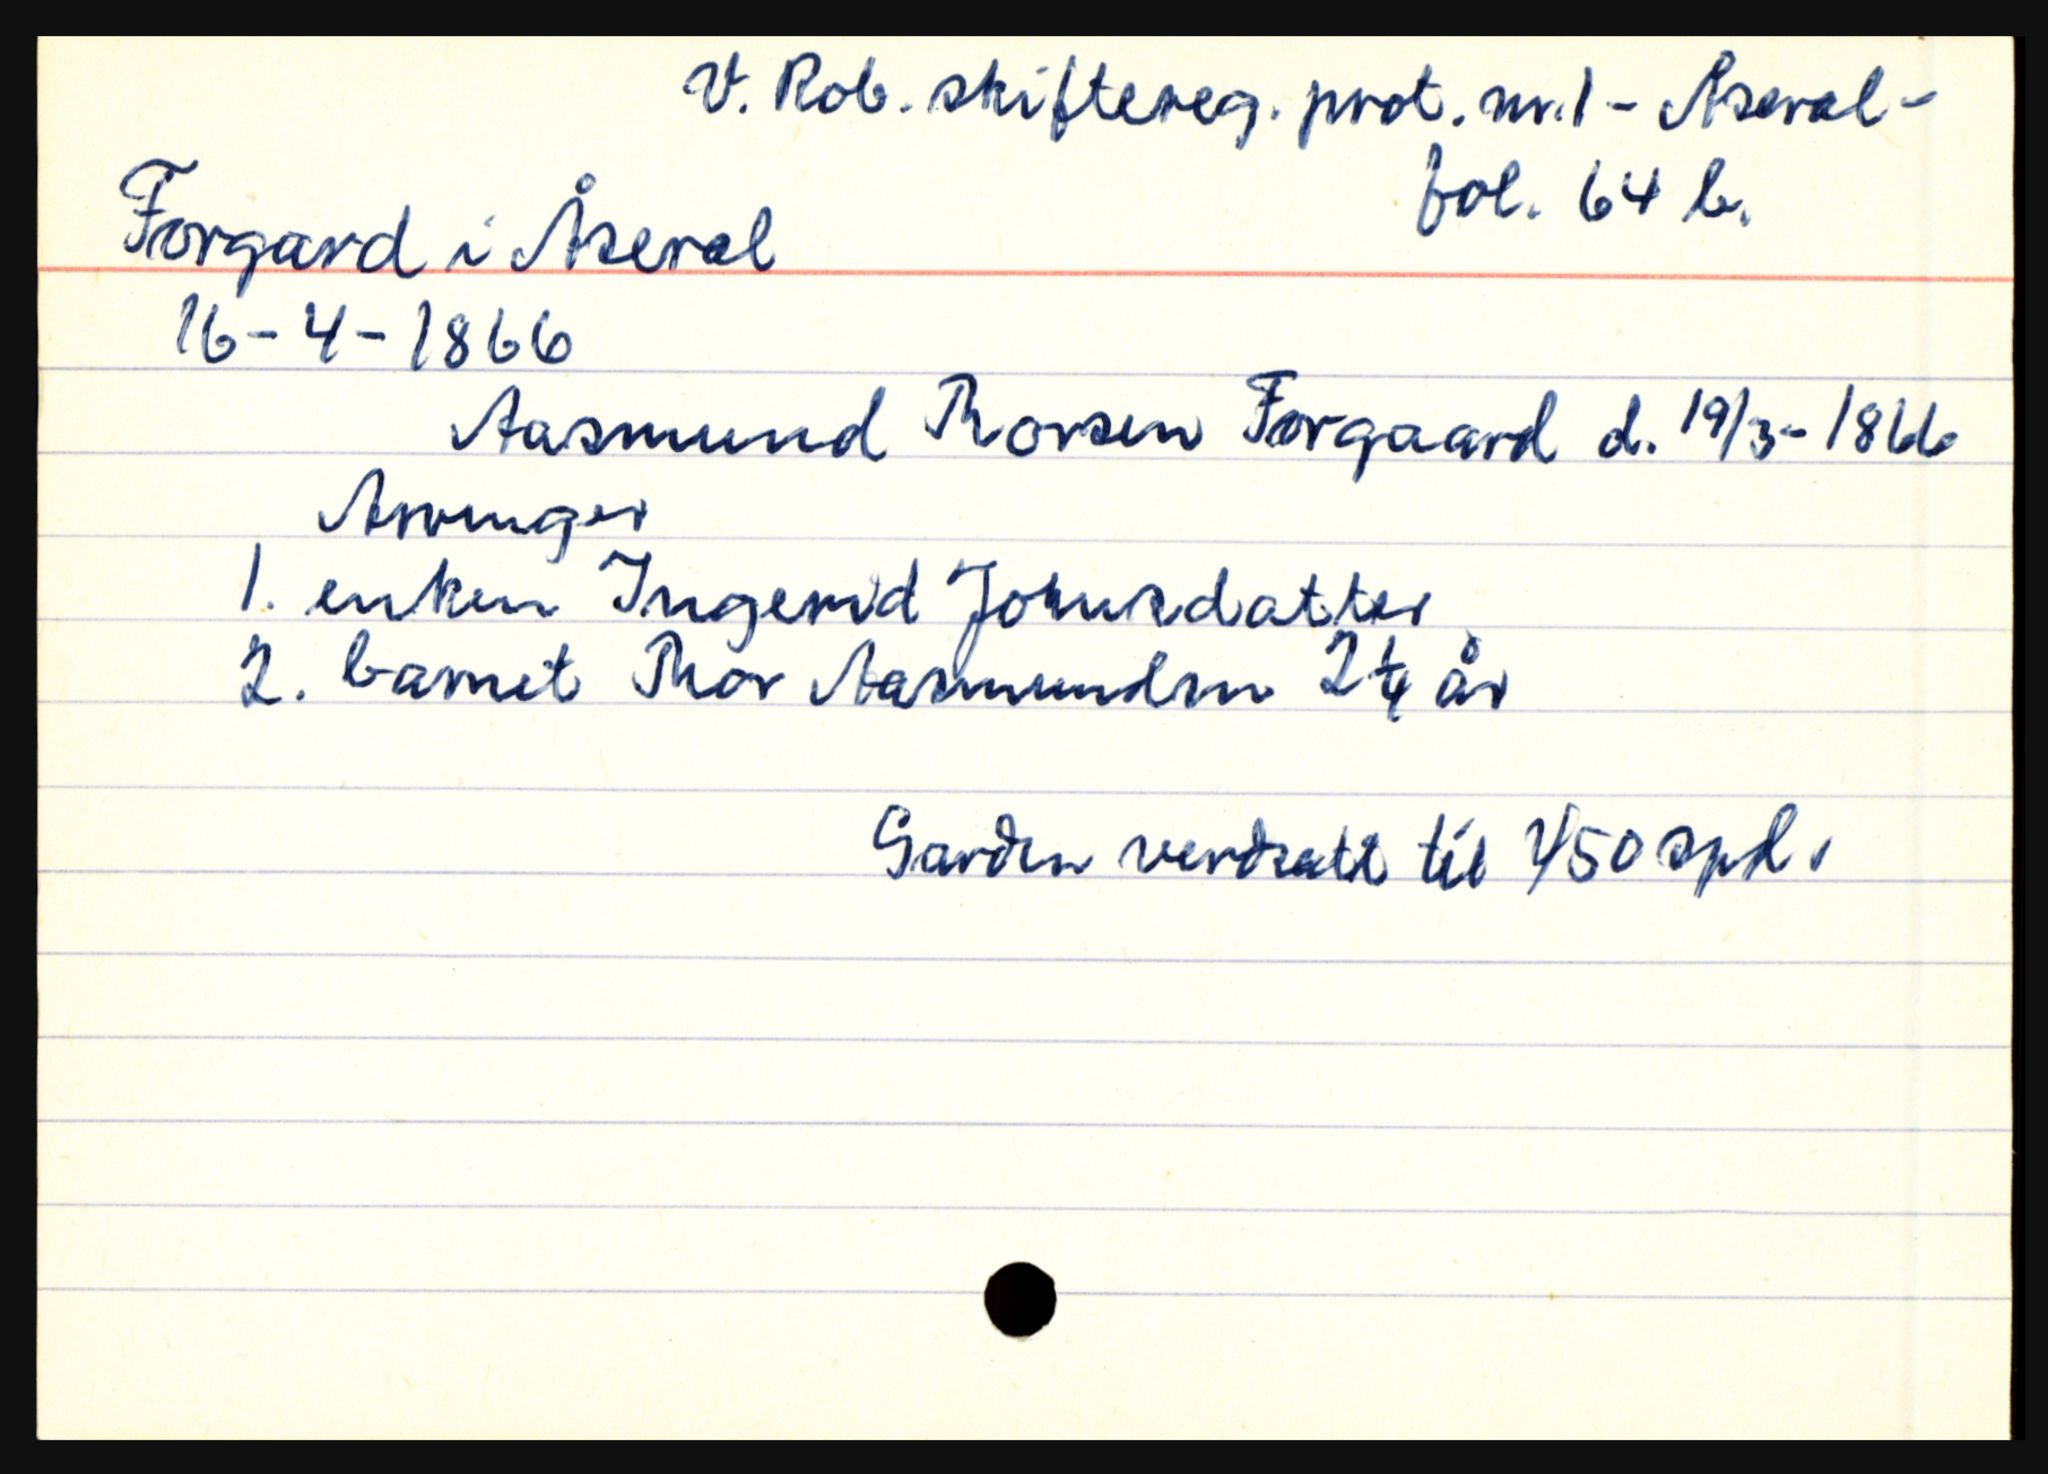 V. Rob. skiftereg. prot. nr. 1 - Åseral -
fol. 64 b.
Forgard i Åseral
16-4-1866
Aasmund Thorsen Forgaard d. 19/3-1866
Arvinger
1. enken Ingerid Johnsdatter
2. barnet Thor Aasmundsen 2 1/4 år
Garden verdsatt til 450 spd.